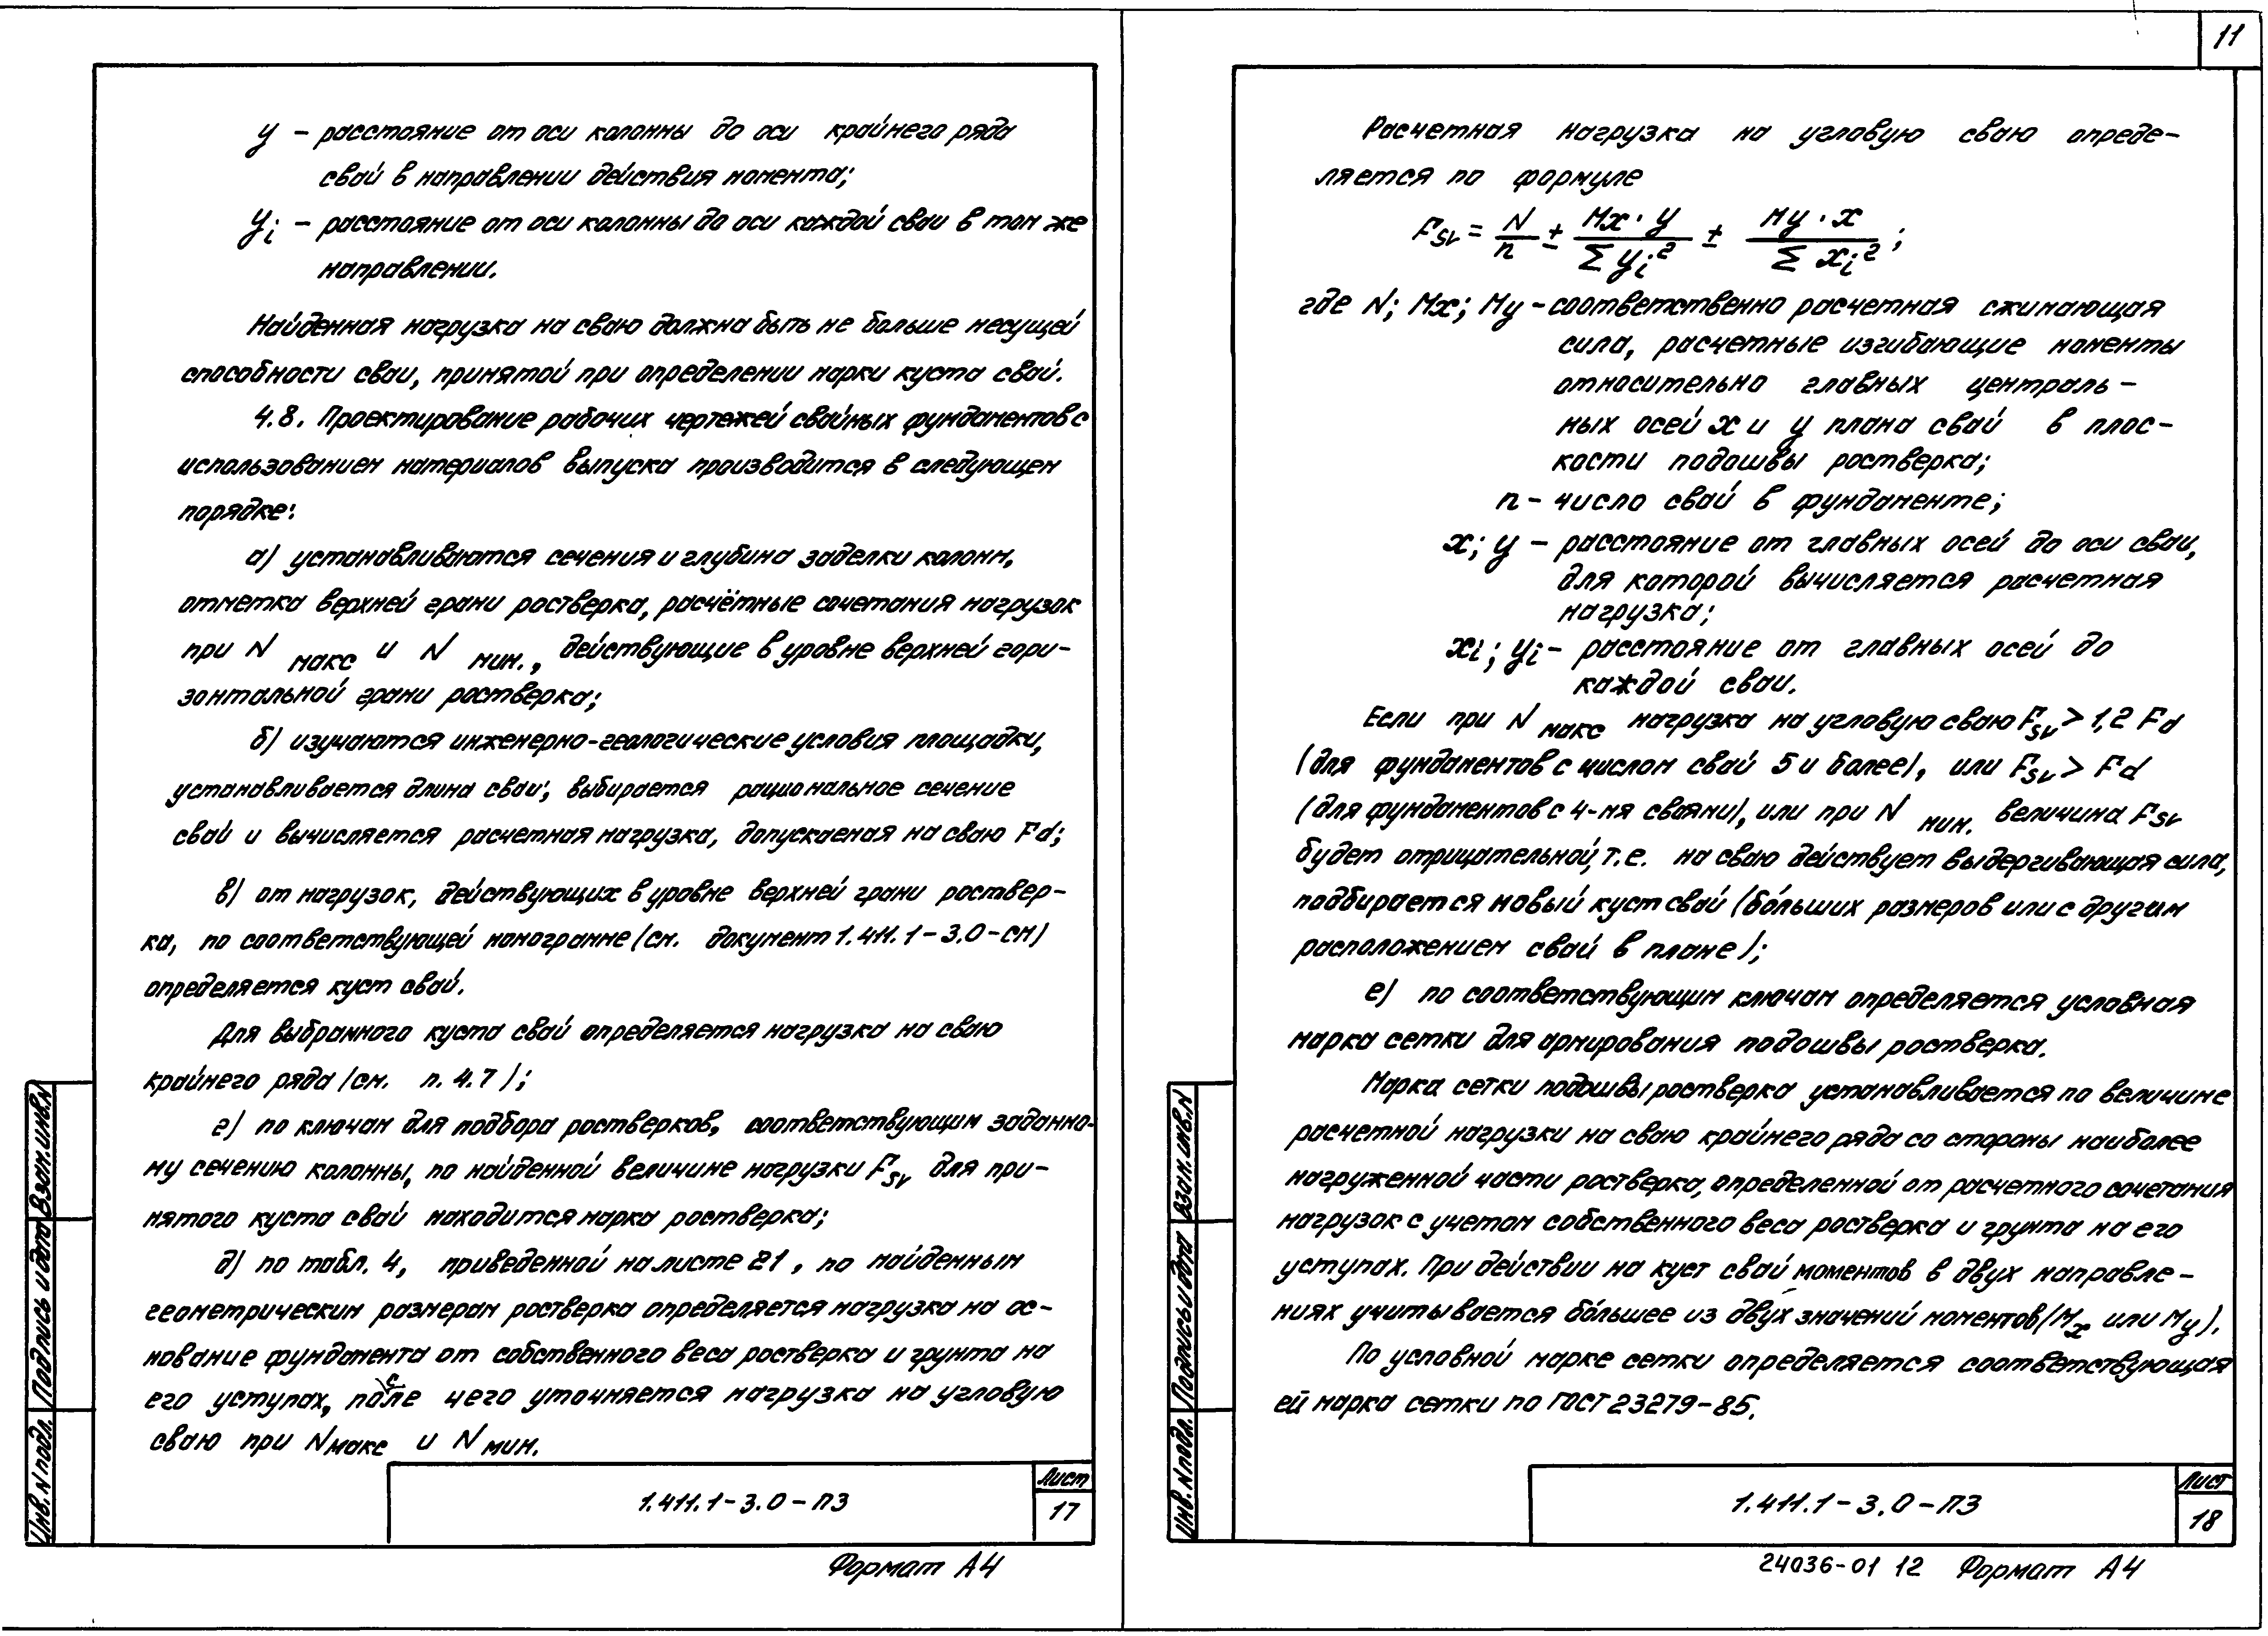 11
y – расстояние от оси колонны до оси крайнего ряда
свай в направлении действия момента;
yi – расстояние от оси колонны до оси каждой сваи в том же
направлении.
Найденная нагрузка на сваю должна быть не больше несущей
способности сваи, принятой при определении марки куста свай.
4.8. Проектирование рабочих чертежей свайных фундаментов с
использованием материалов выпуска производится в следующем
порядке:
а) устанавливаются сечения и глубина заделки колонн,
отметка верхней грани ростверка, расчётные сочетания нагрузок
при N макс и N мин., действующие в уровне верхней гори-
зонтальной грани ростверка;
б) изучаются инженерно-геологические условия площадки,
устанавливается длина сваи, выбирается рациональное сечение
свай и вычисляется расчетная нагрузка, допускаемая на сваю Fd;
в) от нагрузок, действующих в уровне верхней грани роствер-
ка, по соответствующей номограмме (см. документ 1.411.1-3.0-СМ)
определяется куст свай.
Для выбранного куста свай определяется нагрузка на сваю
крайнего ряда (см. п. 4.7);
г) по ключам для подбора ростверков, соответствующим заданно-
му сечению колонны, по найденной величине нагрузки Fsv для при-
нятого куста свай находится марка ростверка;
д) по табл. 4, приведенной на листе 21, по найденным
геометрическим размерам ростверка определяется нагрузка на ос-
нование фундамента от собственного веса ростверка и грунта на
его уступах, после чего уточняется нагрузка на угловую
сваю при Nмакс и Nмин.
1.411.1-3.0-ПЗ
Лист
17
Инв. N подл.
Подпись и дата
Взам. инв. N
Формат А4
Расчетная нагрузка на угловую сваю опреде-
ляется по формуле
Fsv = N/n ± Mx · y / Σ yi² ± My · x / Σ xi² ;
где N; Mx; My – соответственно расчетная сжимающая
сила, расчетные изгибающие моменты
относительно главных централь-
ных осей x и y плана свай в плос-
кости подошвы ростверка;
n – число свай в фундаменте;
x; y – расстояние от главных осей до оси сваи,
для которой вычисляется расчетная
нагрузка;
xi; yi – расстояние от главных осей до
каждой сваи.
Если при N макс нагрузка на угловую сваю Fsv > 1,2 Fd
(для фундаментов с числом свай 5 и более), или Fsv > Fd
(для фундаментов с 4-мя сваями), или при N мин. величина Fsv
будет отрицательной, т.е. на сваю действует выдергивающая сила,
подбирается новый куст свай (бо́льших размеров или с другим
расположением свай в плане);
е) по соответствующим ключам определяется условная
марка сетки для армирования подошвы ростверка.
Марка сетки подошвы ростверка устанавливается по величине
расчетной нагрузки на сваю крайнего ряда со стороны наиболее
нагруженной части ростверка, определенной от расчетного сочетания
нагрузок с учетом собственного веса ростверка и грунта на его
уступах. При действии на куст свай моментов в двух направле-
ниях учитывается бо́льшее из двух значений моментов (Mx или My).
По условной марке сетки определяется соответствующая
ей марка сетки по ГОСТ 23279-85.
1.411.1-3.0-ПЗ
Лист
18
Инв. N подл.
Подпись и дата
Взам. инв. N
24036-01 12 Формат А4